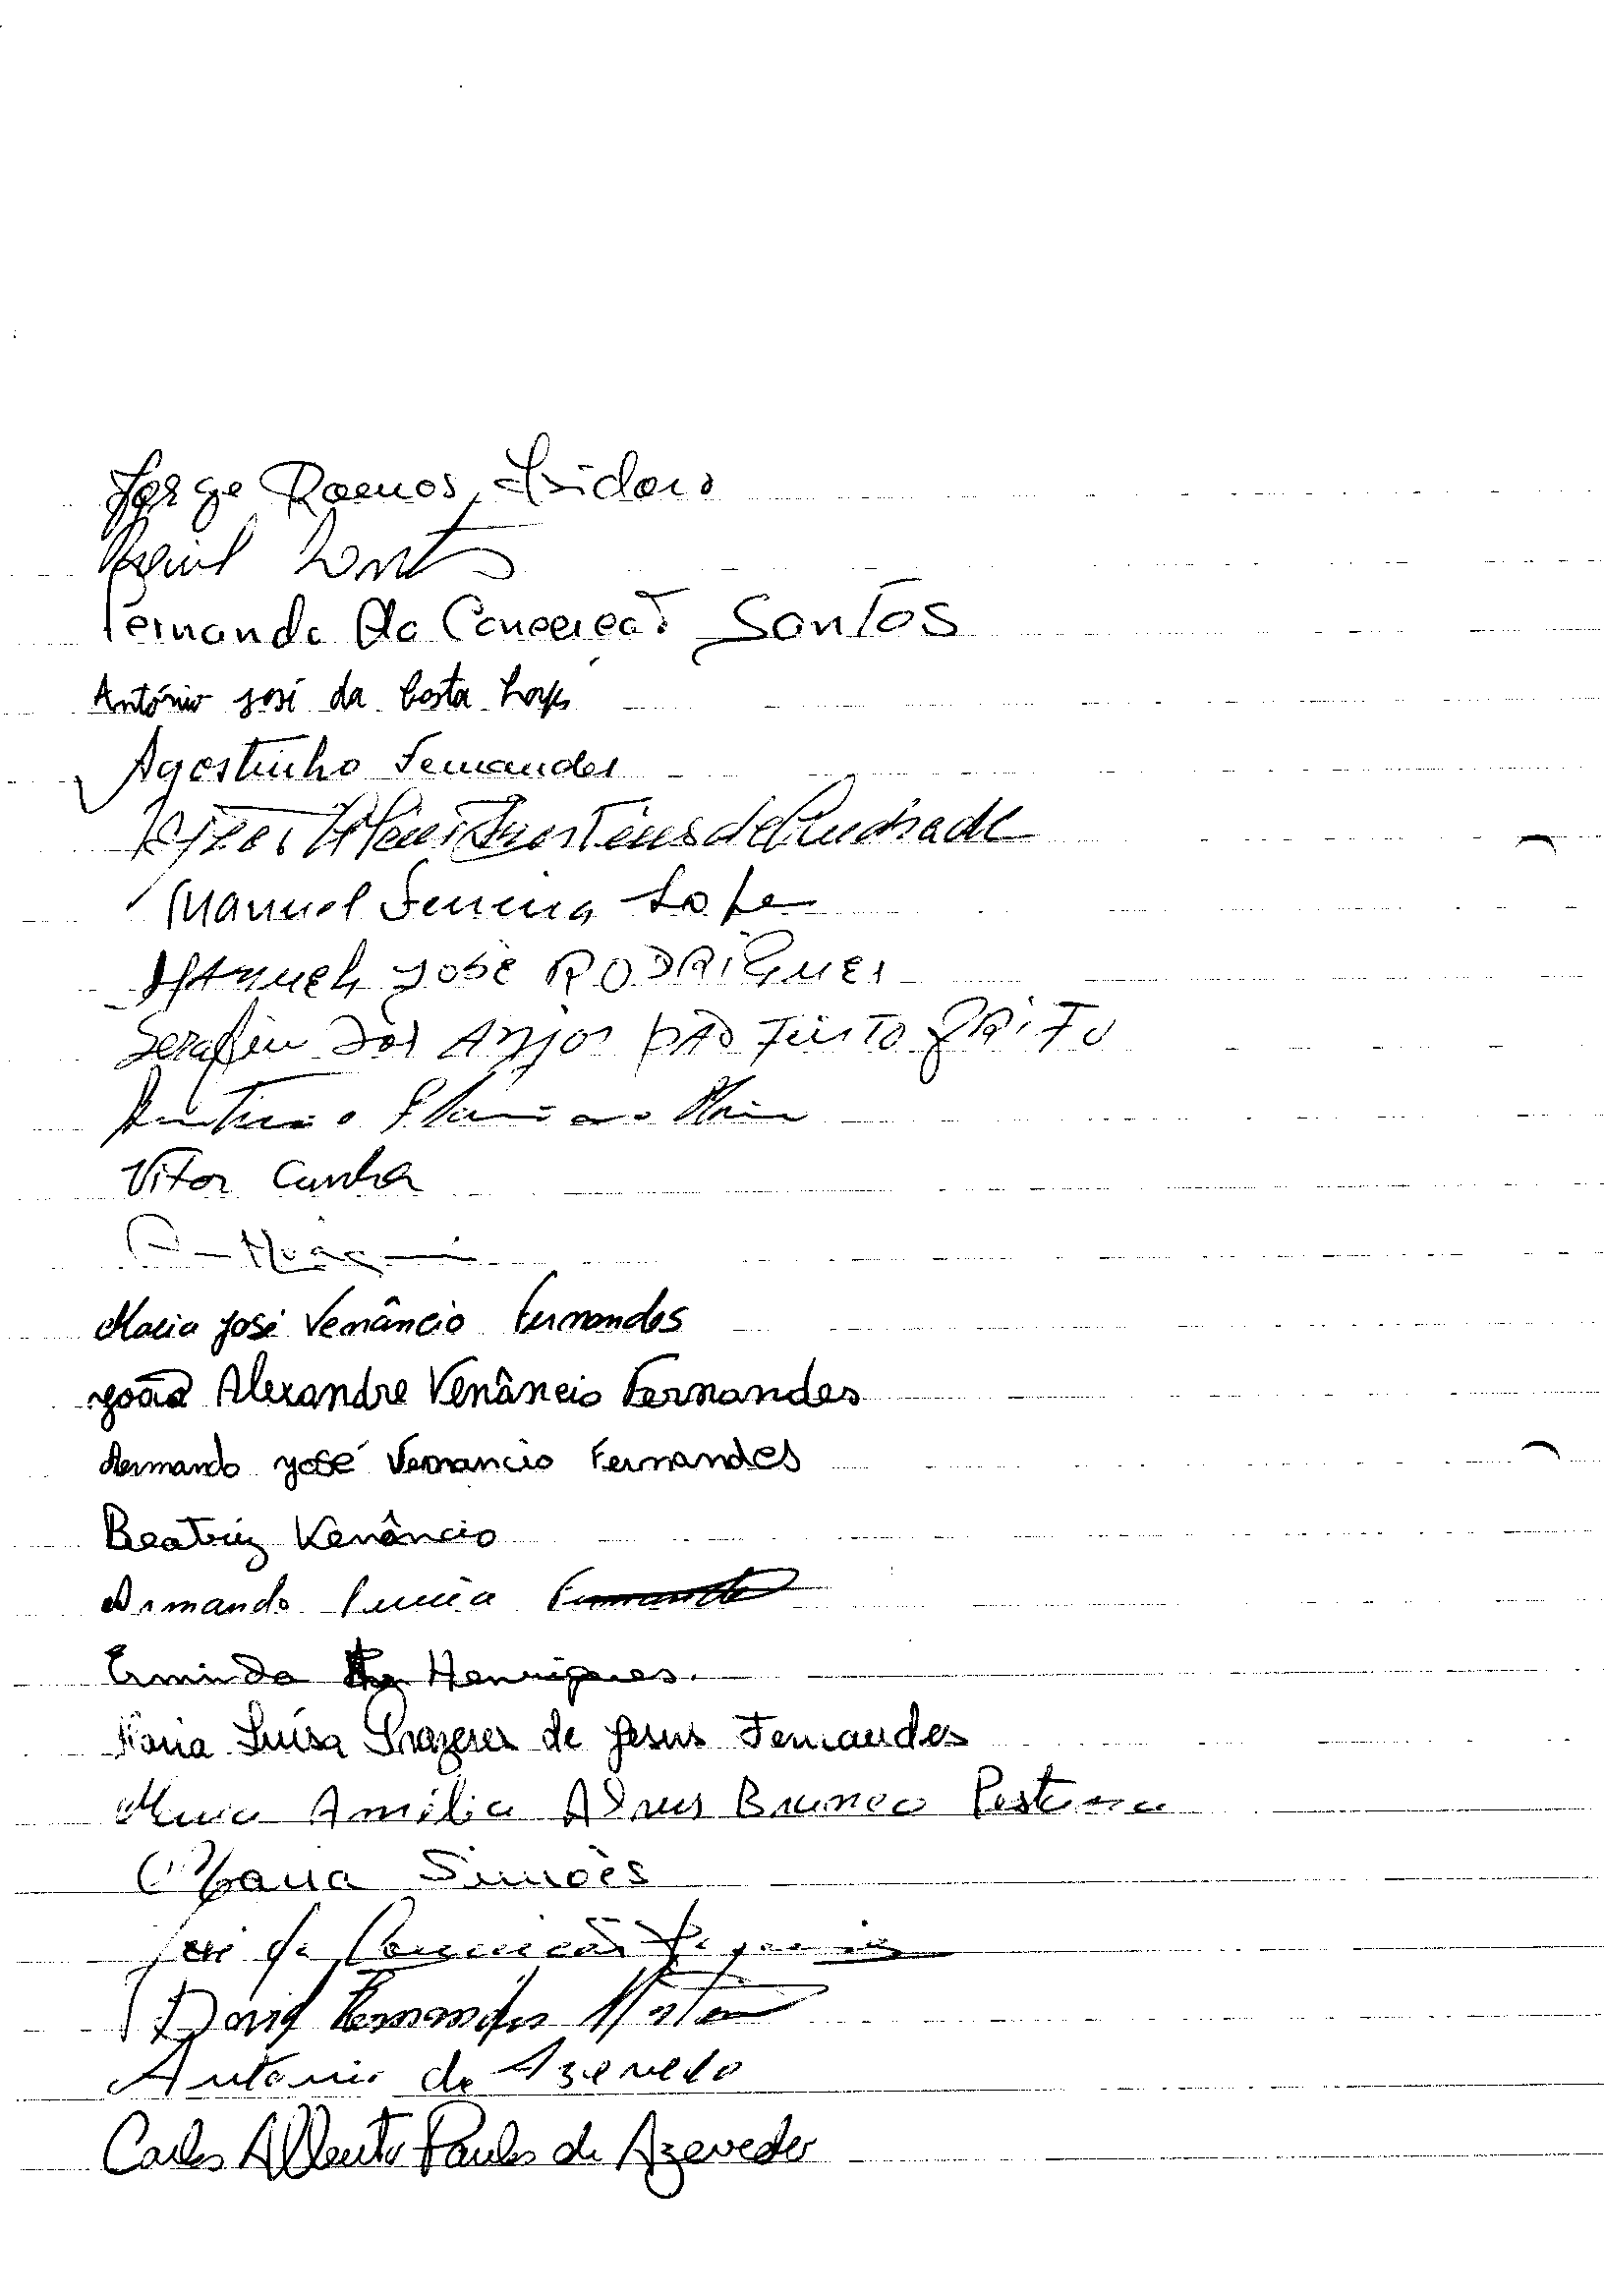 Jorge Ramos Isidoro
Fernanda Da Conceiçaõ Santos
António José da Costa Lopes
Agostinho Fernandes
Martins de Andrade
Manuel Ferreira Lopes
Manuel José RODRIGUES
Serafim Dos Anjos PÃO
António
Vitor Cunha
Maria José Venâncio Fernandes
João Alexandre Venâncio Fernandes
Armando José Venancio Fernandes
Beatriz Venâncio
Armando
Erminda Henriques.
Maria Luísa Prazeres de Jesus Fernandes
Maria Amélia Alves Branco Pestana
Maria Simões
José da Conceição
David Fernandes
António de Azevedo
Carlos Alberto Paulos de Azevedo